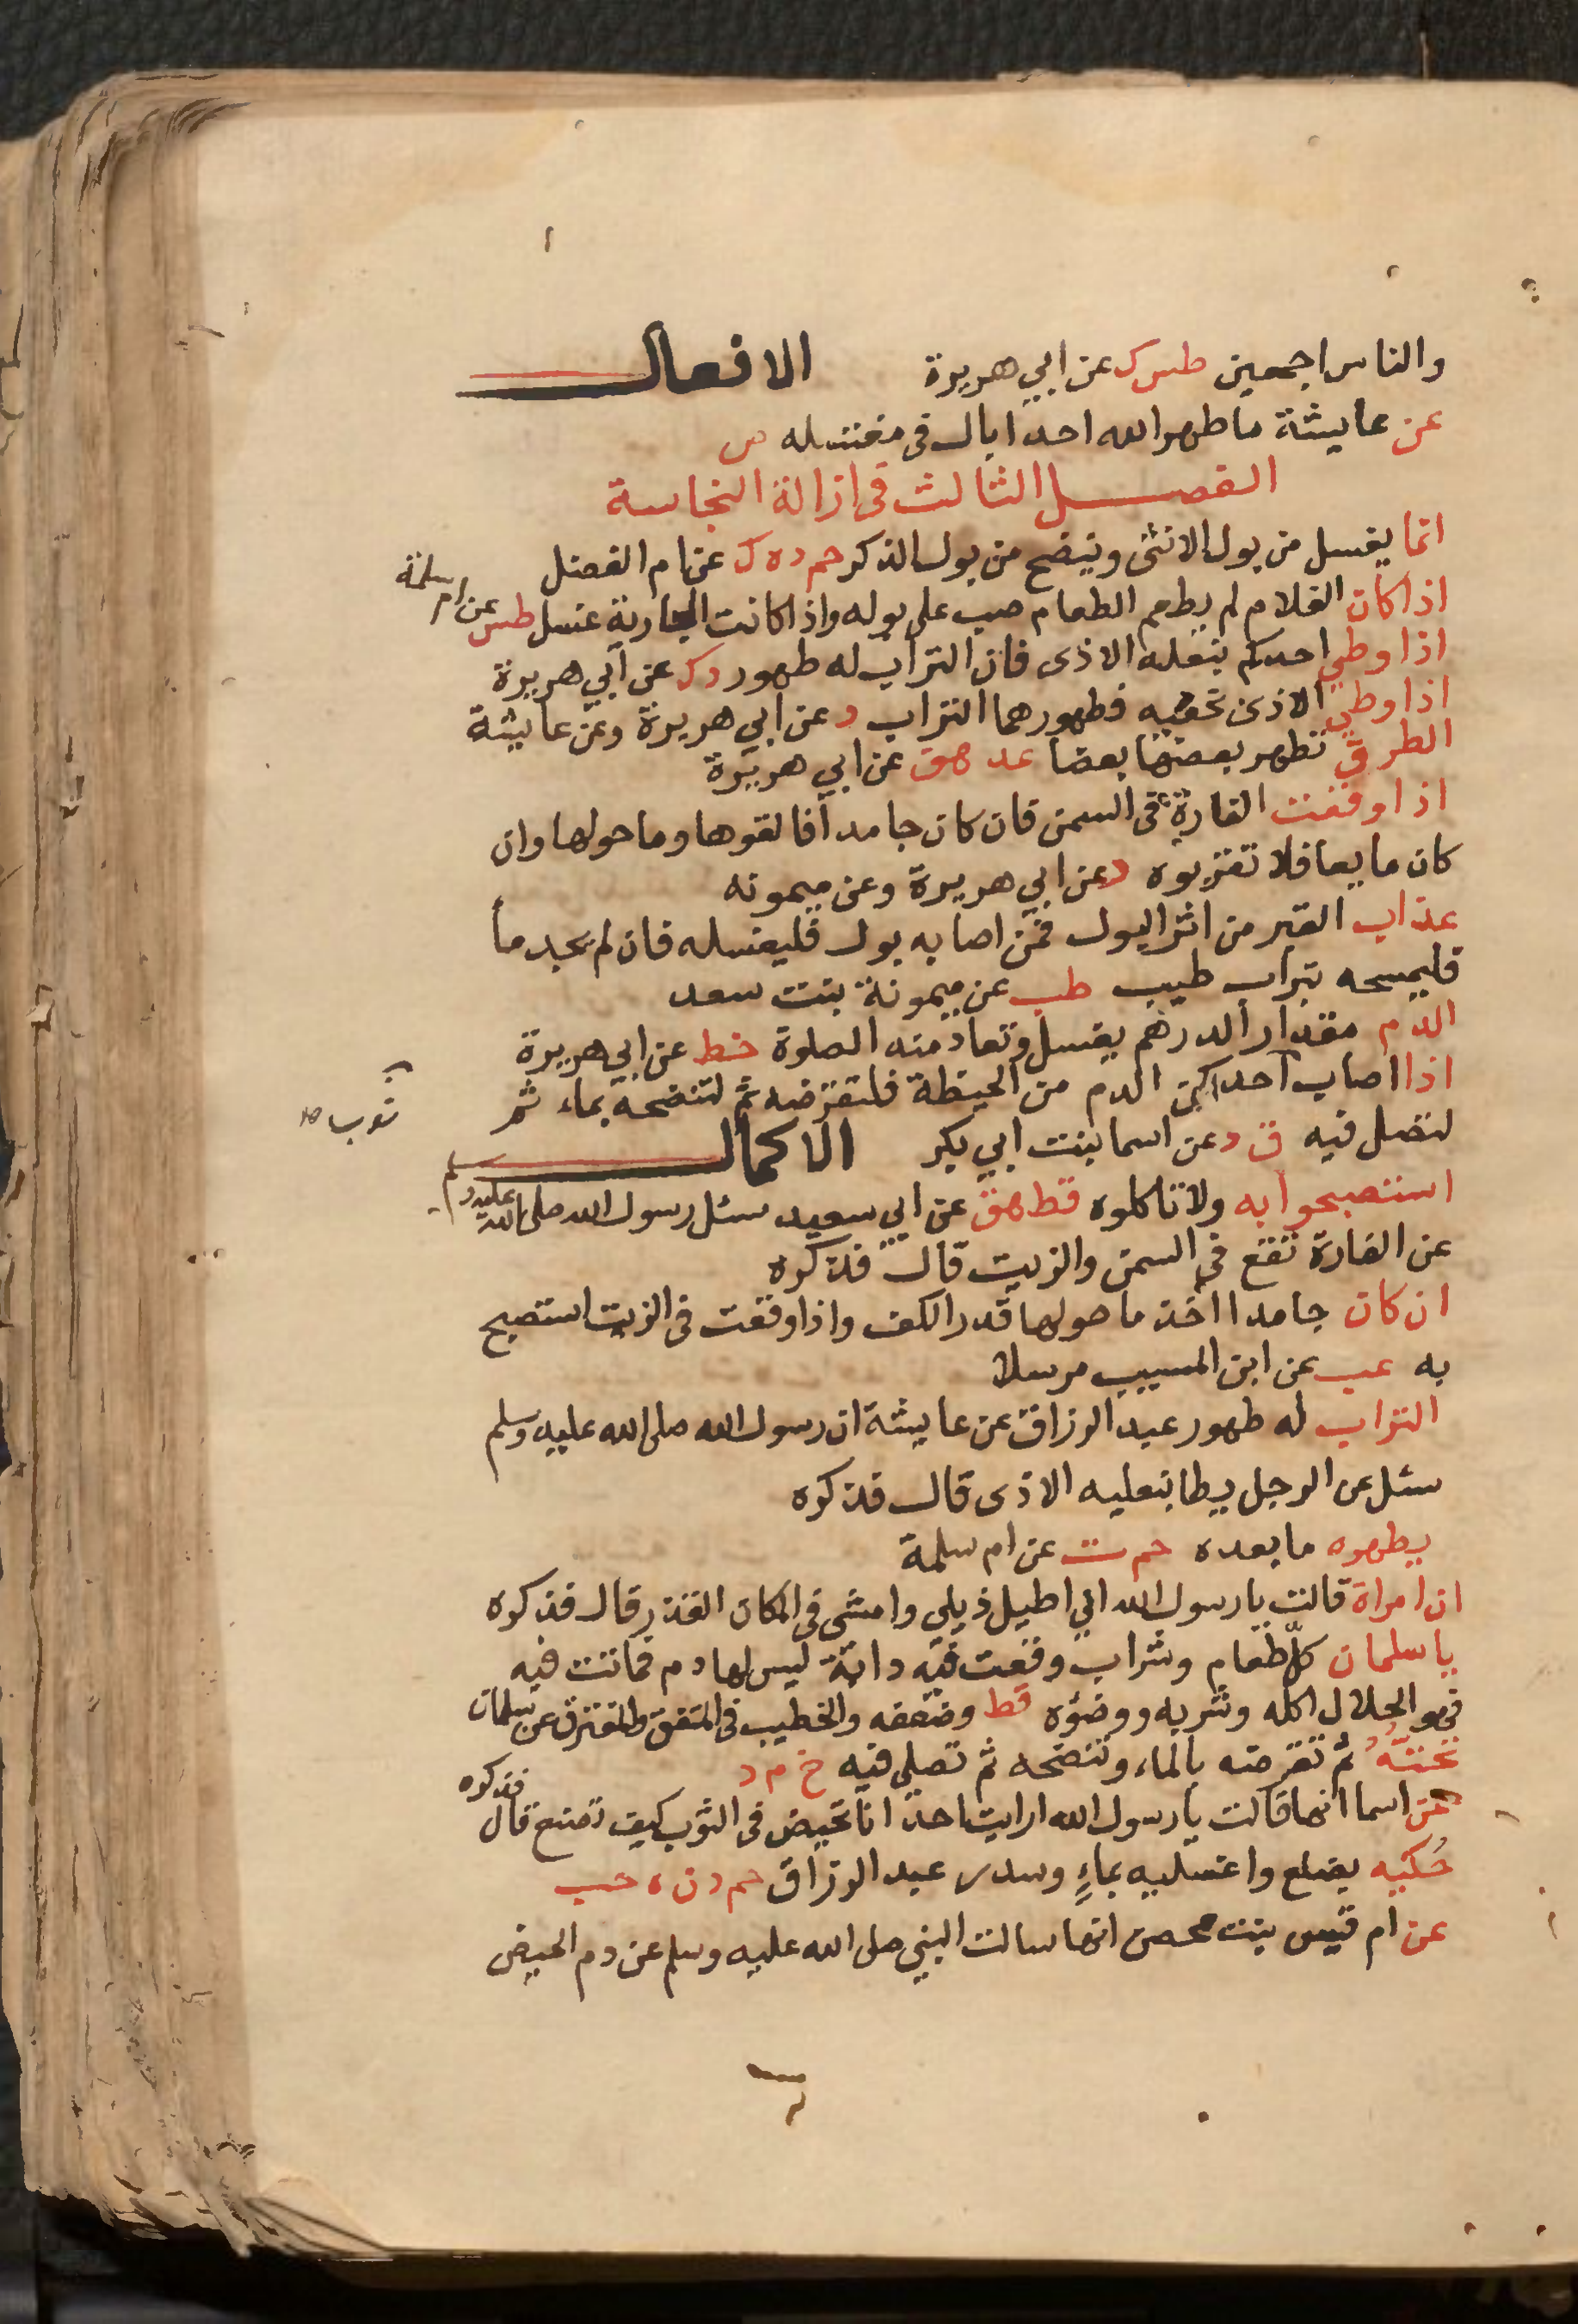 والناس اجمعين طس ك عن ابي هريرة الافعال
عن عايشة ما طهر الله احدا بال في مغتسله ص
الفصل الثالث في ازالة النجاسة
انما يغسل من بول الانثى وينضح من بول الذكر حم د ه ك عن ام الفضل
اذا كان الغلام لم يطعم الطعام صب على بوله واذا كانت الجارية غسل طس عن ام سلمة
اذا وطي احدكم بنعله الاذى فان التراب له طهور د ك عن ابي هريرة
اذا وطي الاذى بخفيه فطهورهما التراب د عن ابي هريرة وعن عايشة
الطرق تطهر بعضها بعضا عد هق عن ابي هريرة
اذا وقعت الفارة في السمن فان كان جامدا فالقوها وما حولها وان
كان مايعا فلا تقربوه د عن ابي هريرة وعن ميمونه
عذاب القبر من اثر البول فمن اصابه بول فليغسله فان لم يجد مأ
فليمسحه بتراب طيب طب عن ميمونة بنت سعد
الدم مقدار الدرهم يغسل وتعاد منه الصلوة خط عن ابي هريرة
اذا اصاب احداكن الدم من الحيضة فلتقرضه ثم لتنضحه بماء ثم
ثوب
لتصل فيه ق د عن اسما بنت ابي بكر الاكمال
استصبحوا به ولا تاكلوه قط هق عن ابي سعيد سئل رسول الله صلى الله عليه وسلم
عن الفارة تقع في السمن والزيت قال فذكره
ان كان جامدا اخذ ما حولها قدر الكف واذا وقعت في الزيت استصبح
به عب عن ابن المسيب مرسلا
التراب له طهور عبد الرزاق عن عايشة ان رسول الله صلى الله عليه وسلم
سئل عن الرجل يطا بنعليه الاذى قال فذكره
يطهره ما بعده حم ت عن ام سلمة
ان امراة قالت يا رسول الله اني اطيل ذيلي وامشي في المكان القذر قال فذكره
يا سلمان كل طعام وشراب وقعت فيه دابة ليس لها دم فماتت فيه
فهو الحلال اكله وشربه ووضؤه قط وضعفه والخطيب في المتفق والمفترق عن سلمان
تحته ثم تقرصه بالماء وتنضحه ثم تصلي فيه خ م د
عن اسما انها قالت يا رسول الله ارايت احدانا تحيض في الثوب كيف تصنع قال فذكره
حكيه بضلع واغسليه بماء وسدر عبد الرزاق حم د ن ه حب
عن ام قيس بنت محصن انها سالت النبي صلى الله عليه وسلم عن دم الحيض